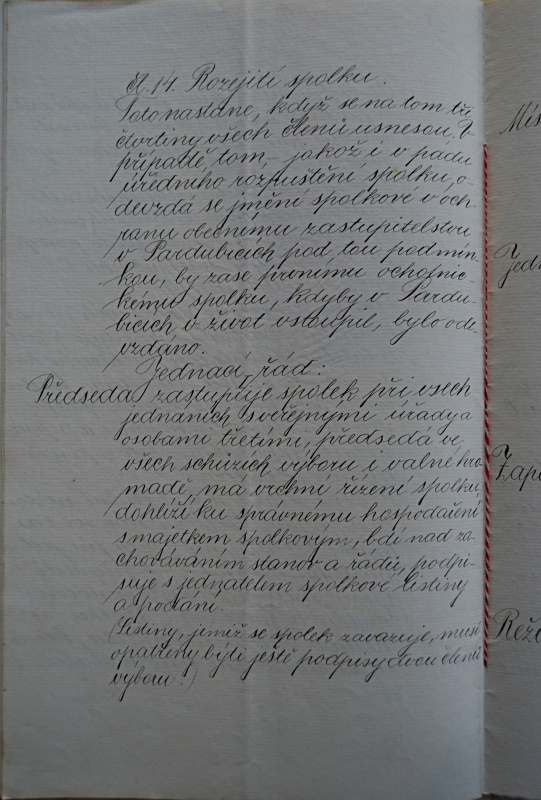 Čl. 14. Rozejití spolku.
Toto nastane, když se na tom tři
čtvrtiny všech členů usnesou. V
případě, tom, jakož i v pádu
úředního rozpuštění spolku, o-
devzdá se jmění spolkové v och-
ranu obecnímu zastupitelstvu
v Pardubicích pod tou podmín-
kou, by zase prvnímu ochotnic-
kému spolku, kdyby v Pardu-
bicích v život vstoupil, bylo ode-
vzdáno.
Jednací řád:
Předseda zastupuje spolek při všech
jednáních s veřejnými úřady a
osobami třetími, předsedá ve
všech schůzích výboru i valné hro-
madě, má vrchní řízení spolku,
dohlíží ku správnému hospodaření
s majetkem spolkovým, bdí nad za-
chováváním stanov a řádů, podpi-
suje s jednatelem spolkové listiny
a podání.
(Listiny, jimiž se spolek zavazuje, musí
opatřeny býti ještě podpisy dvou členů
výboru.)
Mís
Jedn
Zap
Reži